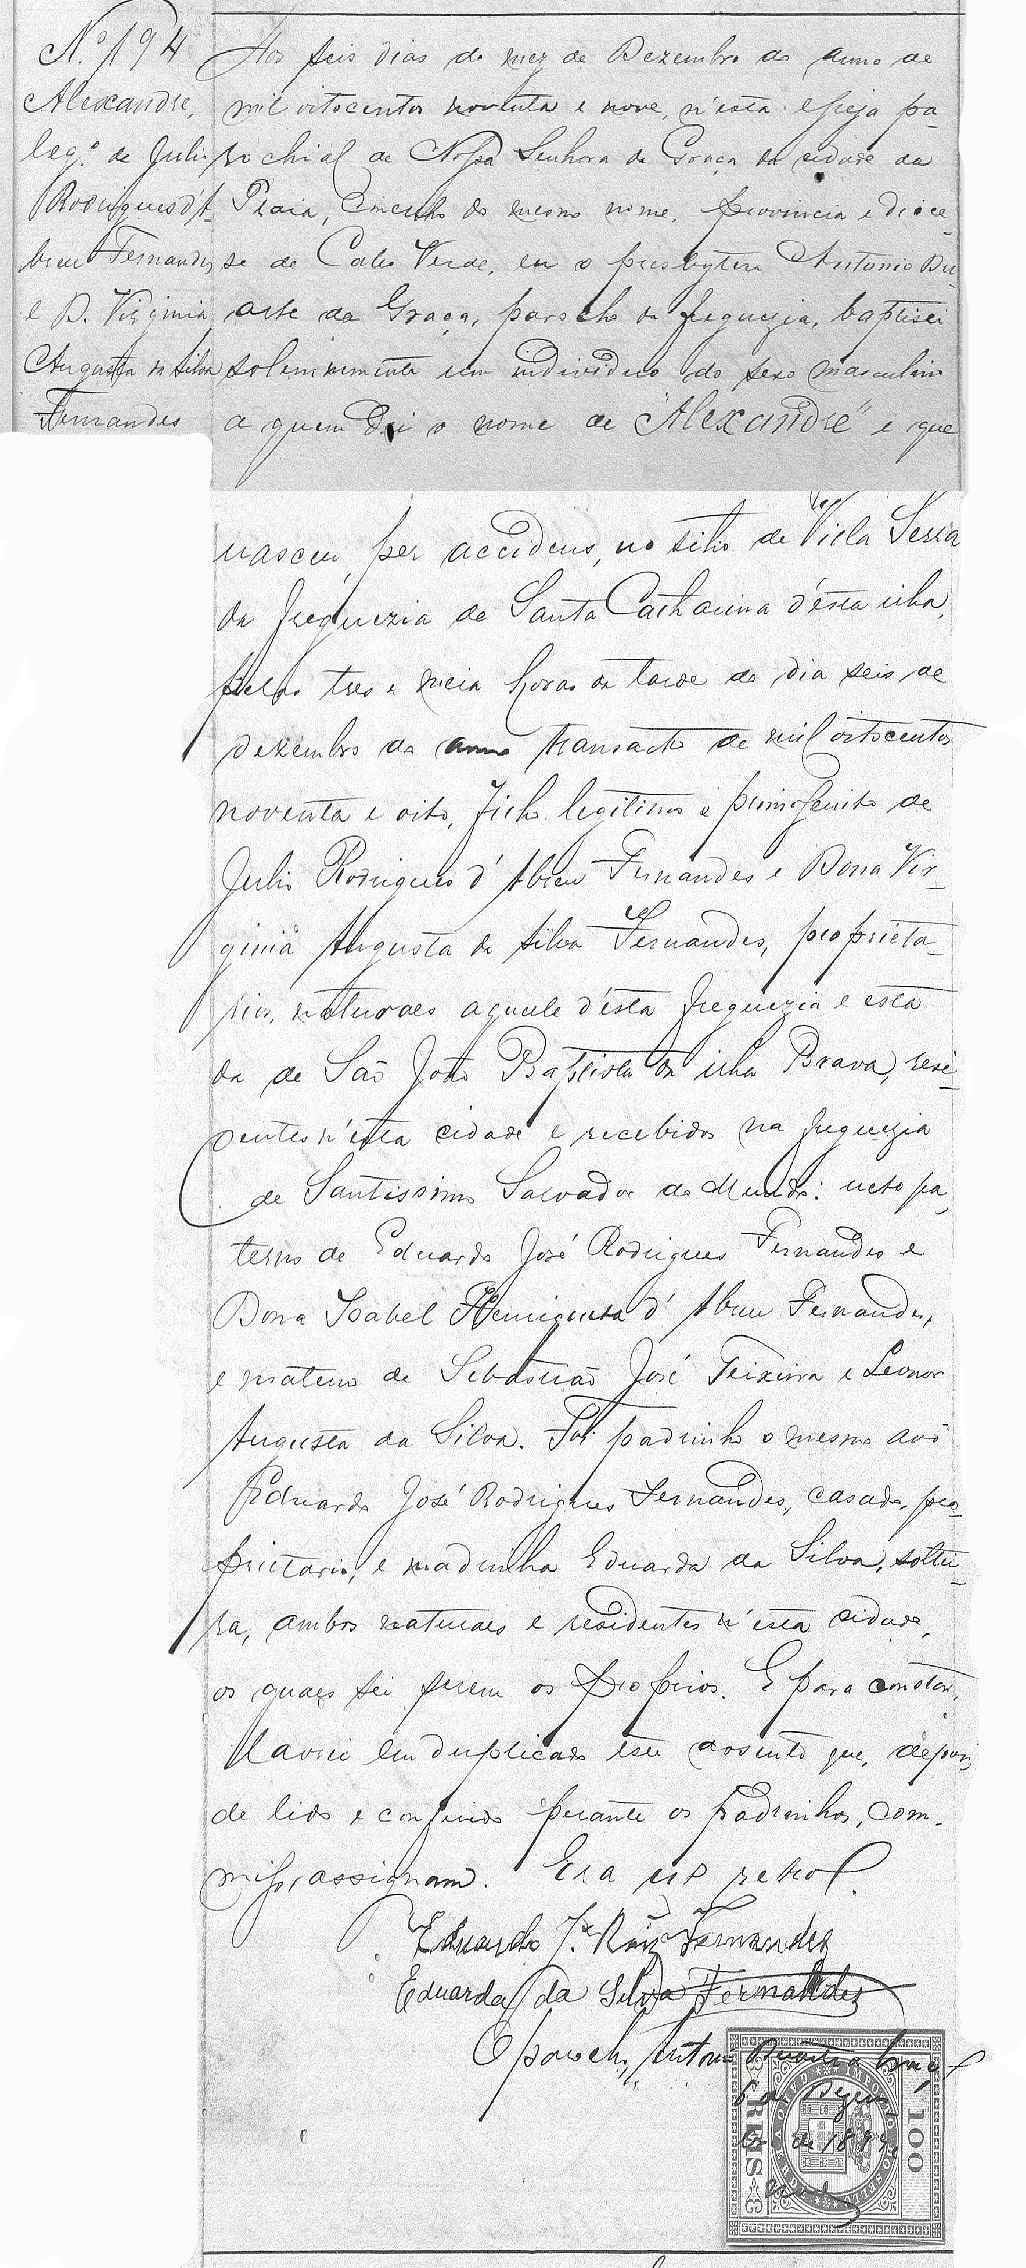 Nº 194
Alexandre,
leg.º de Julio
Rodrigues d'A-
breu Fernandes
e D. Virginia
Augusta da Silva
Fernandes
Aos seis dias do mez de Dezembro do anno de
mil oitocentos noventa e nove, n'esta egreja pa-
rochial de Nossa Senhora da Graça da cidade da
Praia, Concelho do mesmo nome, provincia e dioce-
se de Cabo Verde, eu o presbytero Antonio Du-
arte da Graça, parocho da freguezia, baptisei
solemnemente um individuo do sexo masculino
a quem dei o nome de "Alexandre" e que
nasceu, per accidens, no sitio de Villa Serra
da freguezia de Santa Catharina d'esta ilha,
pelas tres e meia horas da tarde do dia seis de
dezembro do anno transacto de mil oitocentos
noventa e oito, filho legitimo e primogenito de
Julio Rodrigues d'Abreu Fernandes e Dona Vir-
ginia Augusta da Silva Fernandes, proprieta-
rios, naturaes aquele d'esta freguezia e esta
da de São João Baptista da ilha Brava, resi-
dentes n'esta cidade e recebidos na freguezia
de Santissimo Salvador do Mundo: neto pa-
terno de Eduardo José Rodrigues Fernandes e
Dona Izabel Henriqueta d'Abreu Fernandes,
e materno de Sebastião José Teixeira e Leonor
Augusta da Silva. Foi padrinho o mesmo avô
Eduardo José Rodrigues Fernandes, casado, pro-
prietario, e madrinha Eduarda da Silva, soltei-
ra, ambos naturaes e residentes n'esta cidade,
os quaes sei serem os proprios. E para constar,
lavrei em duplicado este assento que, depois
de lido e conferido perante os padrinhos, com-
migo, assignam. Era ut retro.
Eduardo J.é Roiz Fernandes
Eduarda da Silva Fernandes
O parocho, Antonio Duarte da Graça
6 de Dezem-
bro de 1899
100
REIS